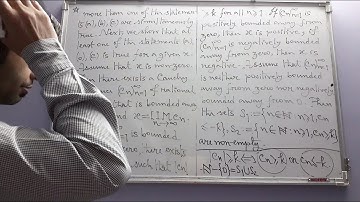 more than one of this statemen
ts (a), (b), (c) are simultaneously
true. Next we show that at
least one of this statements (a)
(b), (c) is true for a given x.
Assume that x is non-zero.
there exists a Cauchy
of rational
that is bounded away
and x = lim Cn.
n→∞
is bounded
there exists
such that |Cn|
> k for all n ≥ 1. If (Cn)n=1∞ is
positively bounded away from
zero, then x is positive, if
(Cn)n=1∞ is negatively bounded
away from zero, then x is
negative. Assume that (Cn)n=1∞
is neither positively bounded
away from 0 nor negatively
bounded away from 0. Then
the sets S1 = {n∈N: n≥1, Cn
< -k}, S2 = {n∈N: n≥1, Cn>k}
are non-empty
|Cn|>k ⟺ Cn>k or Cn<-k
N-{0}=S1∪S2